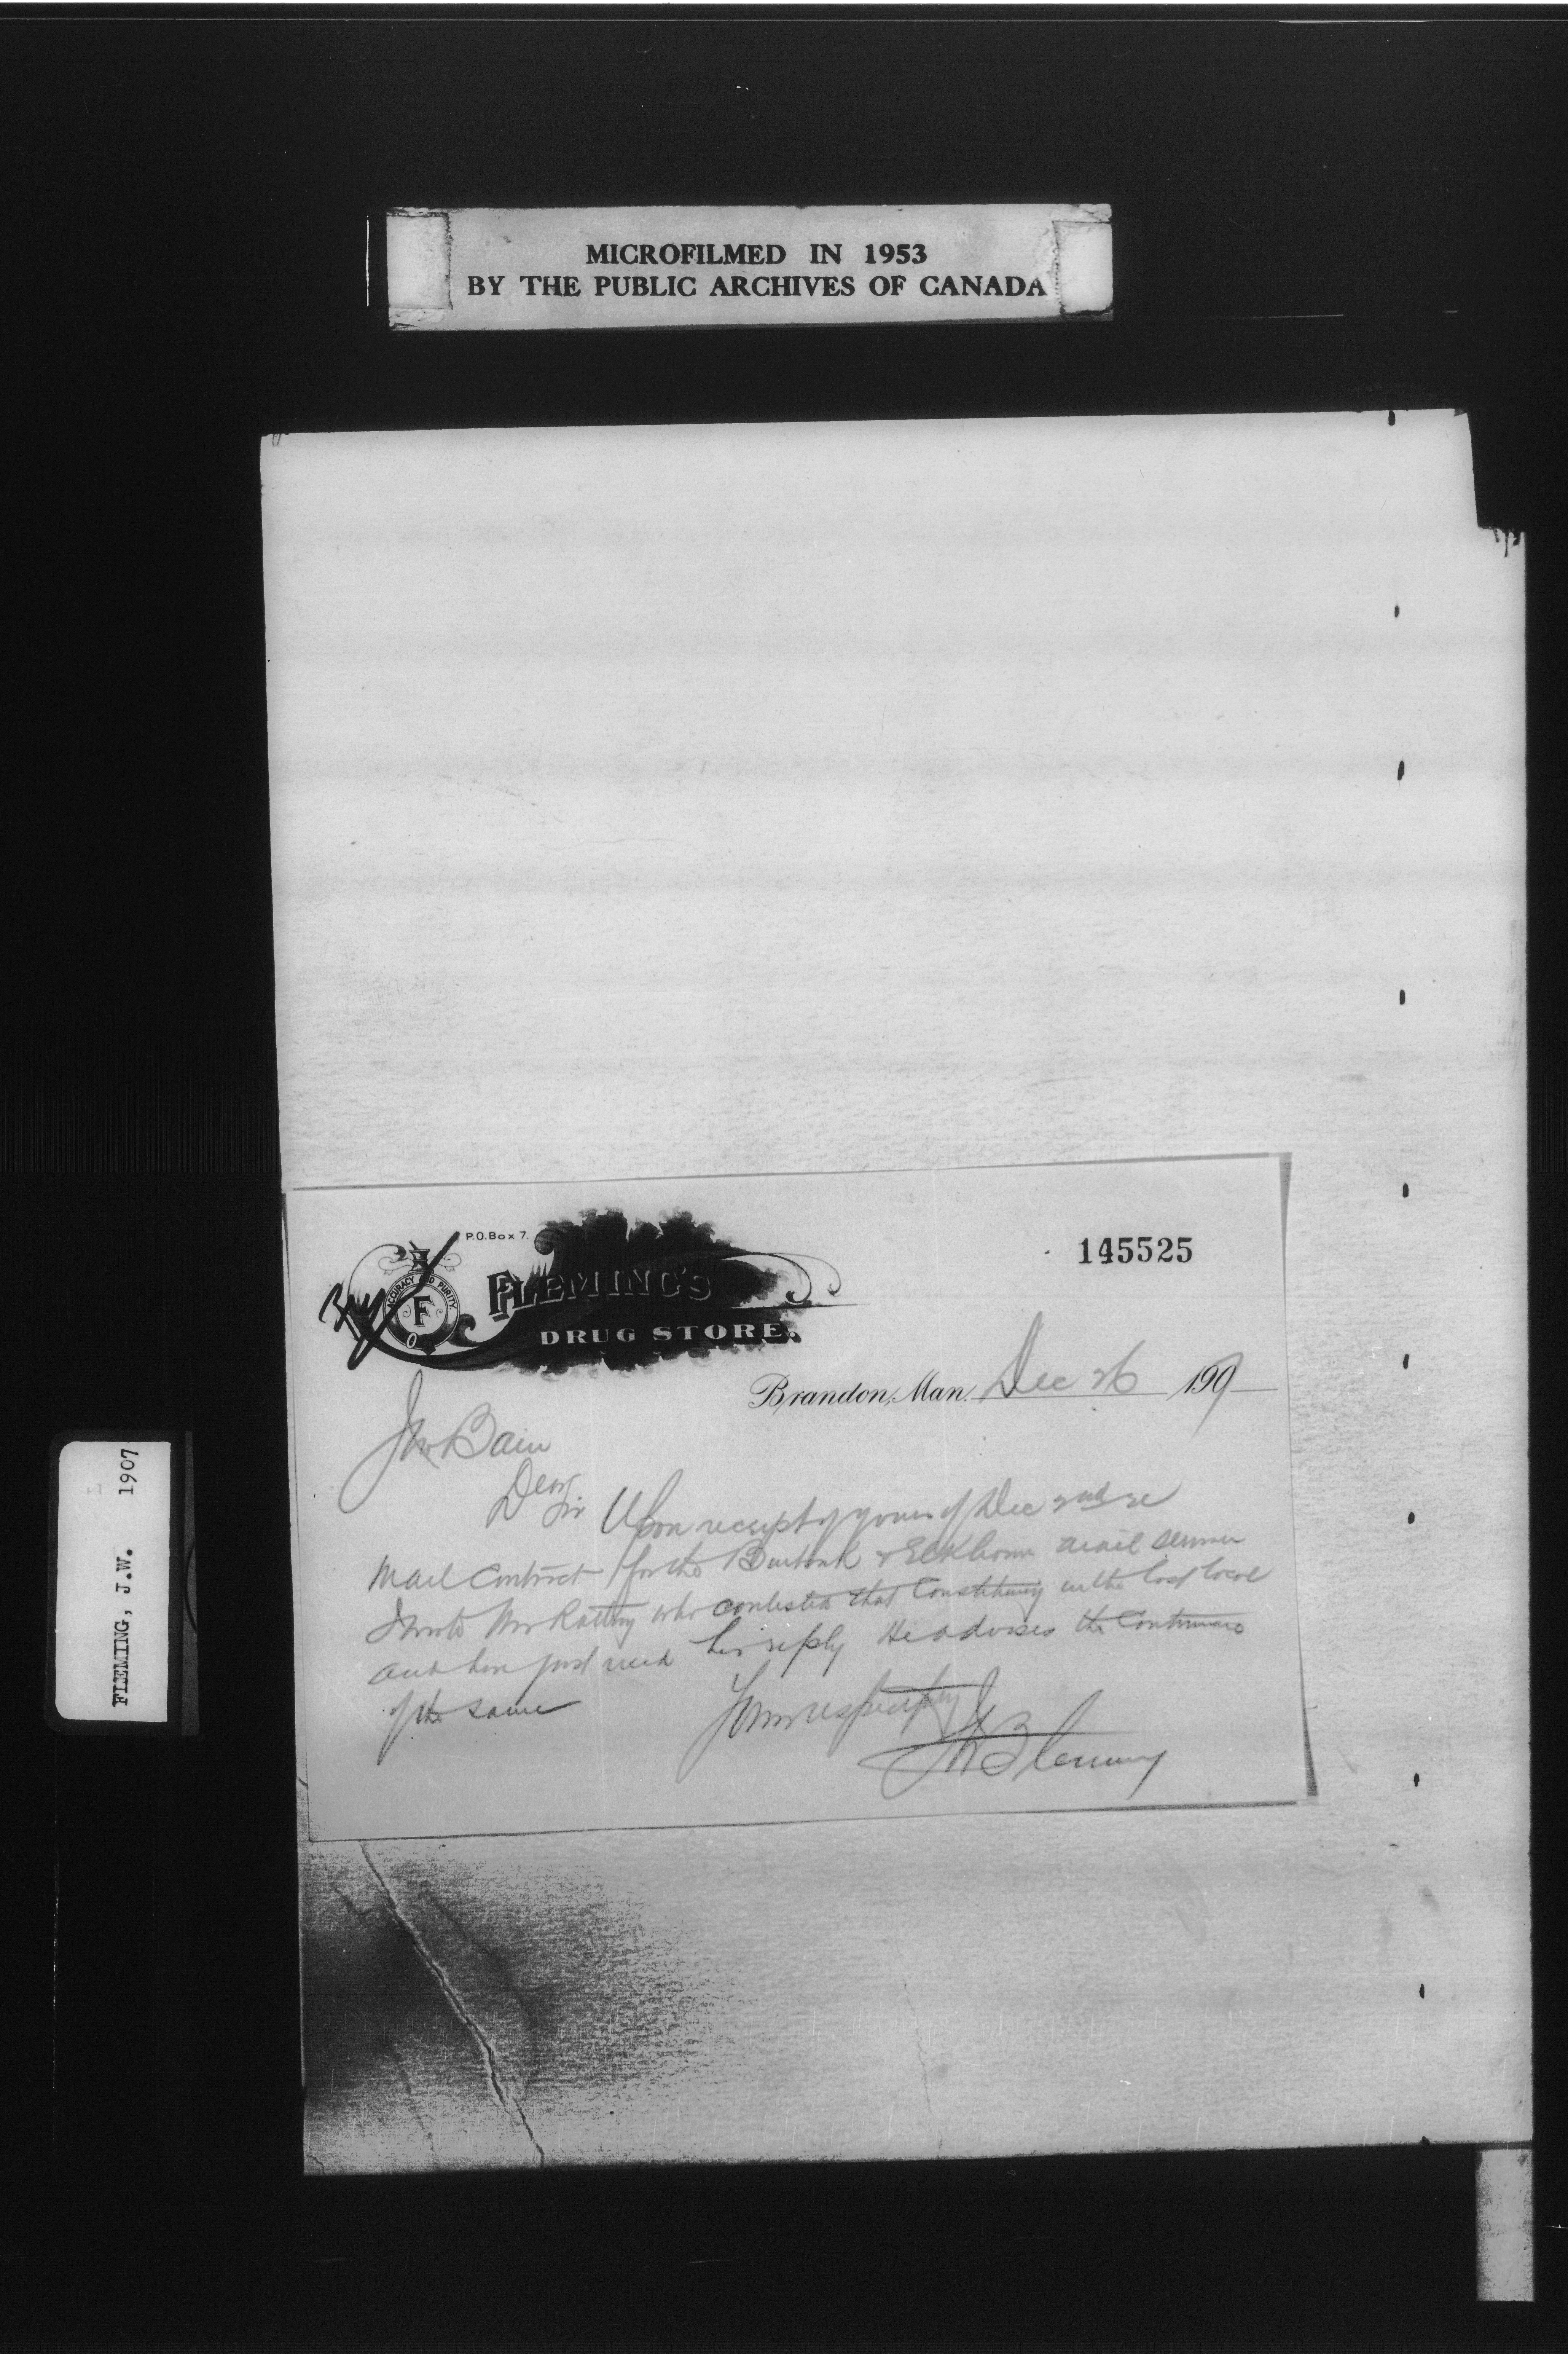 MICROFILMED IN 1953
BY THE PUBLIC ARCHIVES OF CANADA
FLEMING, J.W. 1907
P.O. Box 7.
145525
ACCURACY AND PURITY
F
FLEMING'S
DRUG STORE.
Brandon, Man. Dec 26 1907
Bain
Dear Sir
Upon receipt of yours of Dec 2nd re
Mail Contract for the Burbank & Elkhorn mail service
I wrote Mr Rattray who contested that Constituency in the last local
and have just recd his reply He advises the Continuance
of the same
Yours respectfully
JW Fleming